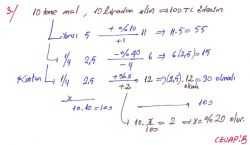 3-) 10 tane mal, 10 liradan alsın ⇒ 100 TL ödesin
5 +%10 +1 11 ⇒ 11.5 = 55
1/4 2,5 -%40 -4 6 ⇒ 6(2,5) = 15
Kalan 1/4 2,5 +%x +2 12 ⇒ (2,5).12 = 30 olmalı
10.10 = 100
100
10. x/100 = 2 ⇒ x = %20 olur.
CEVAP: B